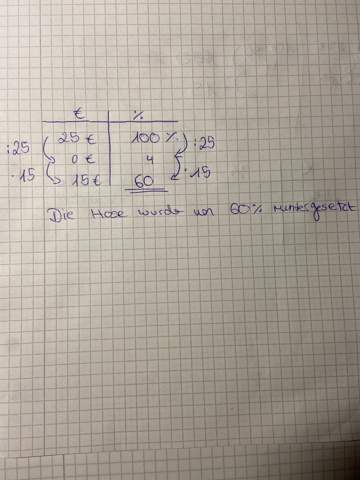 € %
:25 25 € 100 % :25
0 € 4
·15 15 € 60 ·15
Die Hose wurde um 60% runtergesetzt